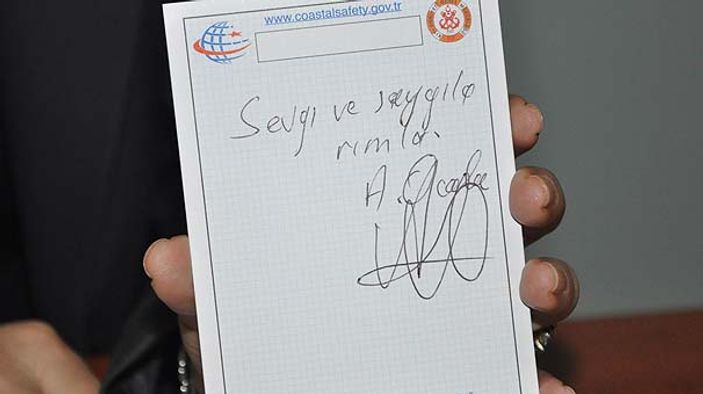 www.coastalsafety.gov.tr
Sevgi ve saygıla
rımla.
A.